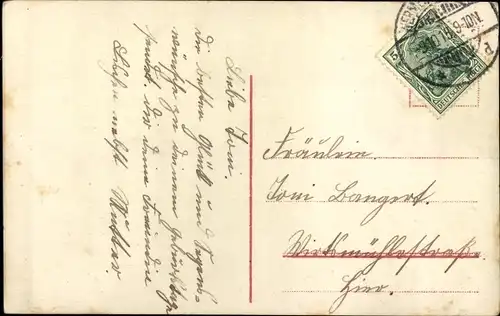 Liebe Toni.
Die besten Glück und Segens-
wünsche zu deinem Geburtstage
sendet dir deine Freundin
nebst Mutter.
Fräulein
Toni Bangert.
Wirtsmühlestraße
Hier.
5
DEUTSCHES REICH
9-10N.